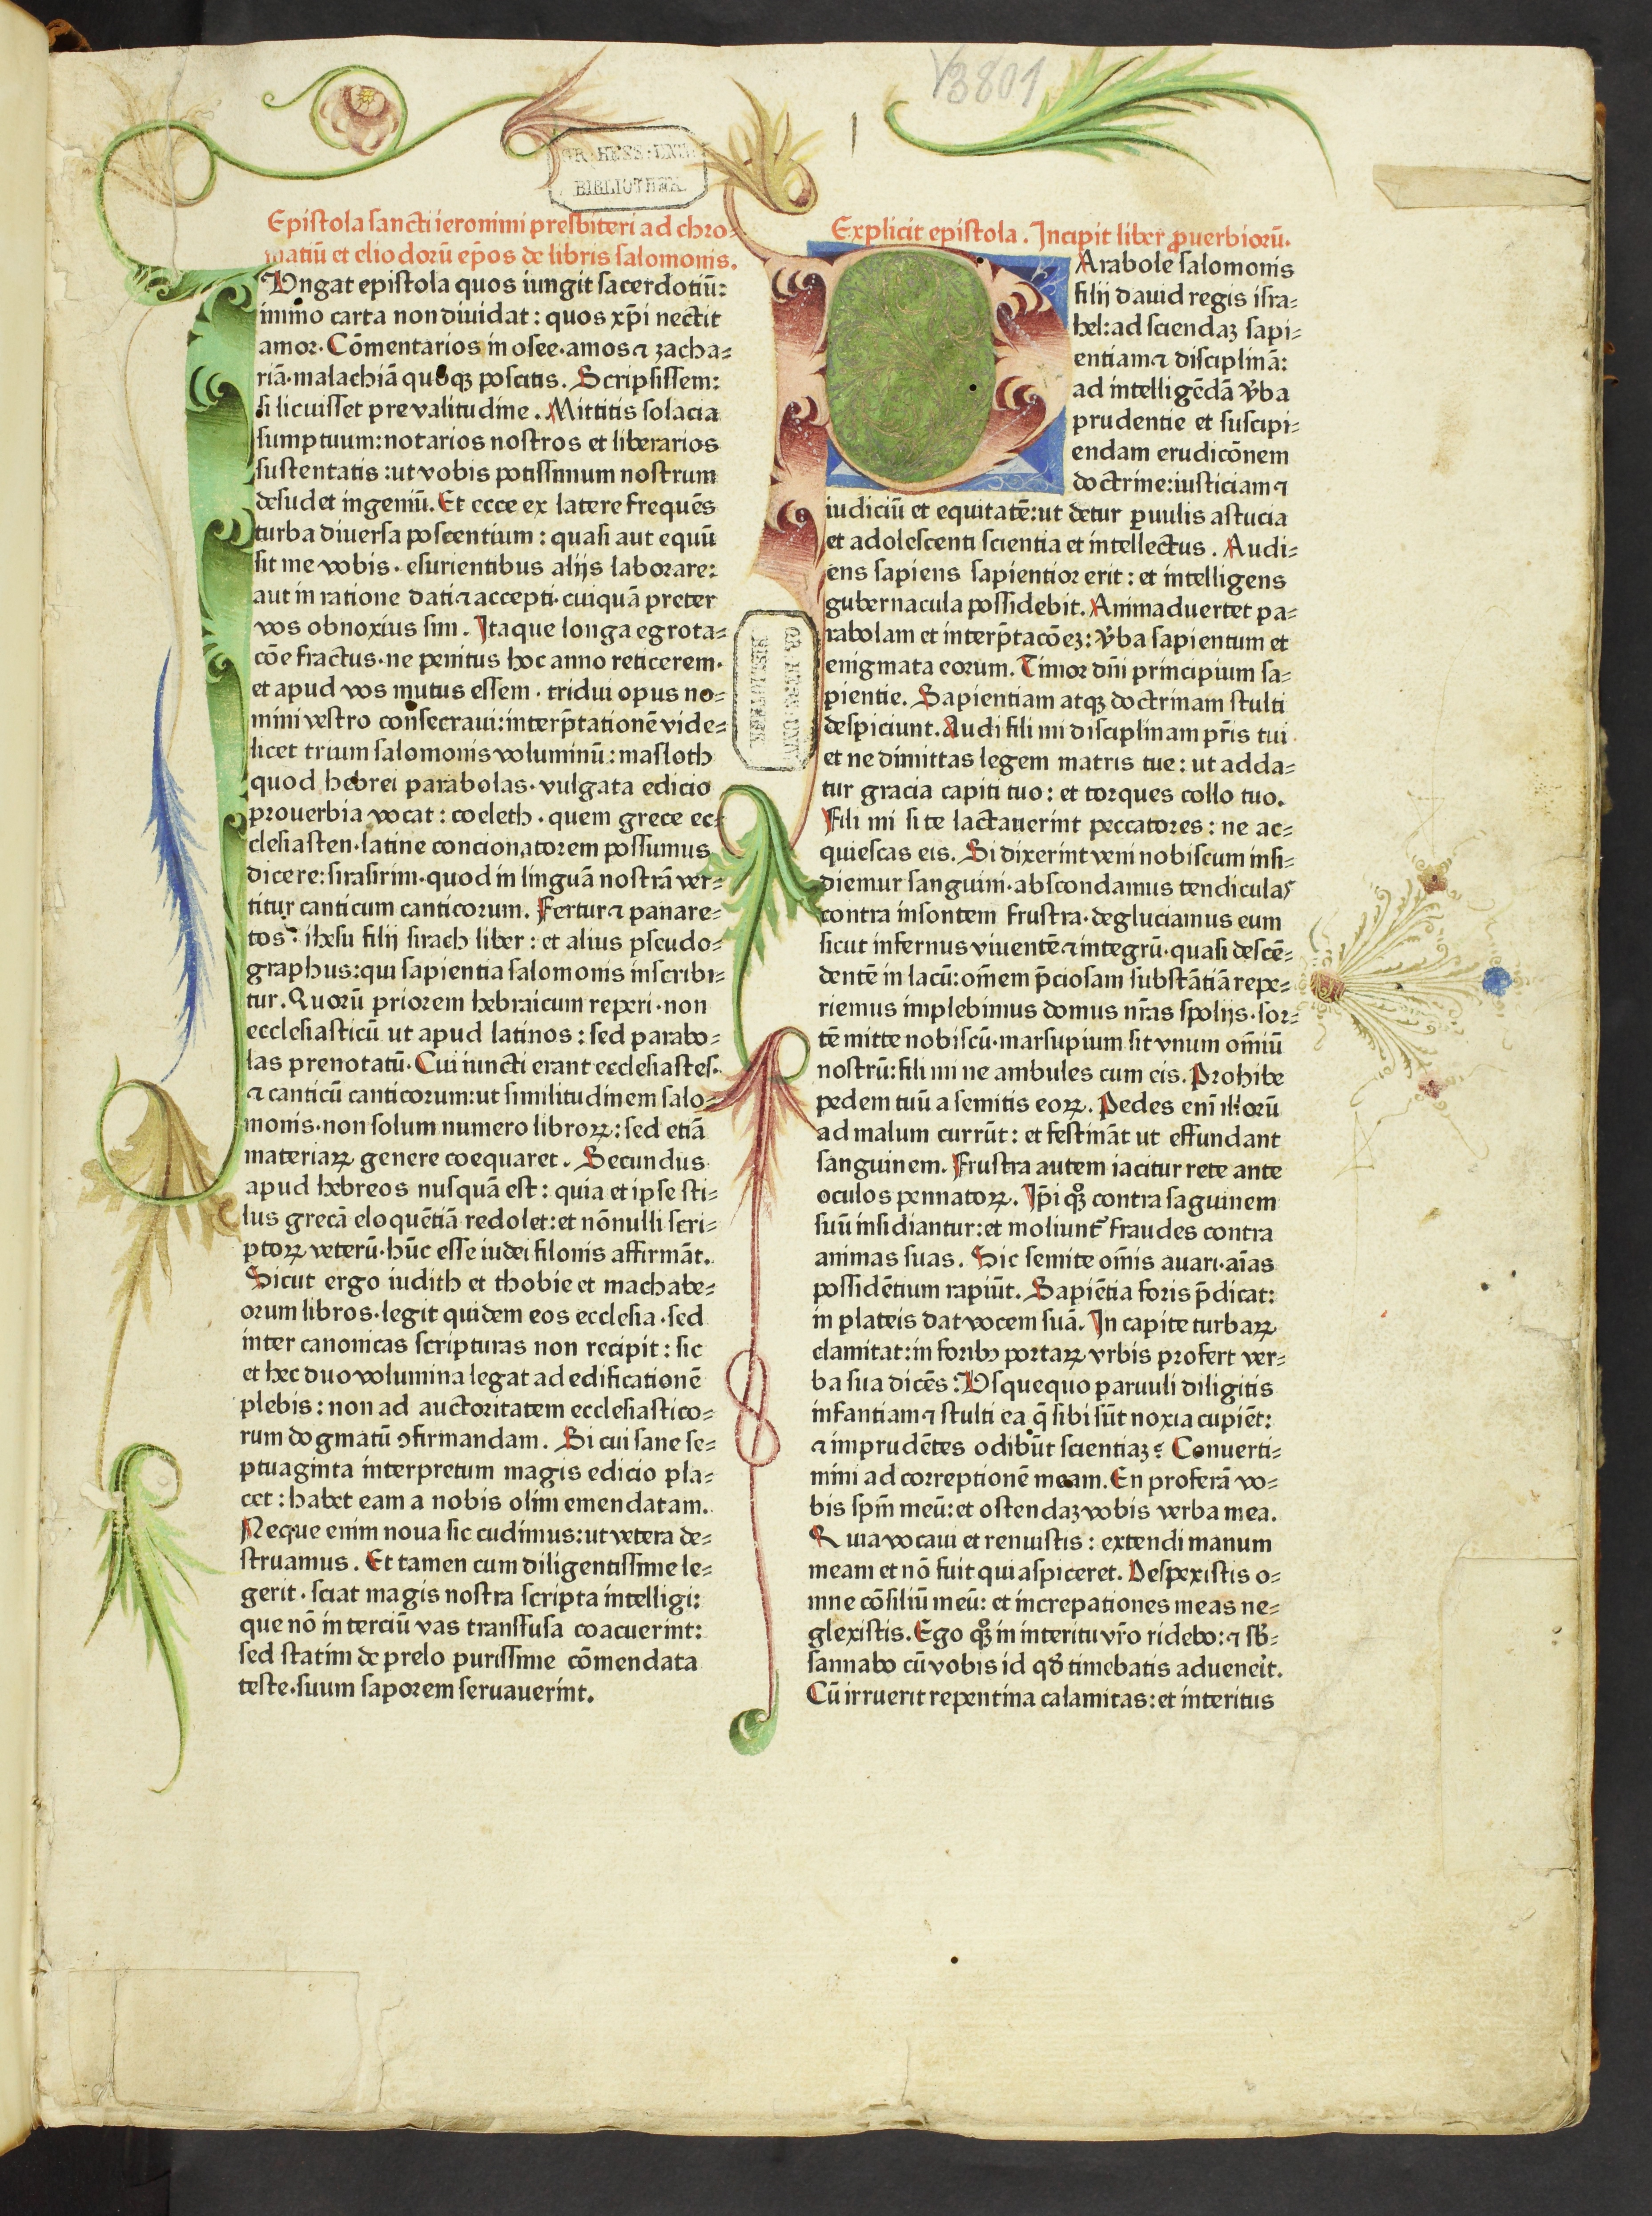 V3801
GR: HESS: UNIV:
BIBLIOTHEK.
Epistola sancti ieronimi presbiteri ad chro-
matiū et eliodorū ep̄os de libris salomonis.
Ungat epistola quos iungit sacerdotiū:
immo carta non diuidat: quos xp̄i nectit
amor. Cōmentarios in osee. amos ⁊ zacha-
riā. malachiā quoqꝫ poscitis. Scripsissem:
si licuisset pre valitudine. Mittitis solacia
sumptuum: notarios nostros et liberarios
sustentatis: ut vobis potissimum nostrum
desudet ingeniū. Et ecce ex latere frequēs
turba diuersa poscentium: quasi aut equū
sit me vobis. esurientibus alijs laborare:
aut in ratione dati ⁊ accepti. cuiquā preter
vos obnoxius sim. Itaque longa egrota-
cōe fractus. ne penitus hoc anno reticerem.
et apud vos mutus essem. tridui opus no-
mini vestro consecraui: interp̄tationē vide-
licet trium salomonis voluminū: masloth
quod hebrei parabolas. vulgata edicio
prouerbia vocat: coeleth. quem grece ec-
clesiasten. latine concionatorem possumus
dicere: sirasirim. quod in linguā nostrā ver-
titur canticum canticorum. Fertur ⁊ panare-
tos: ihesu filij sirach liber: et alius pseudo-
graphus: qui sapientia salomonis inscribi-
tur. Quorū priorem hebraicum reperi. non
ecclesiasticū ut apud latinos: sed parabo-
las prenotatū. Cui iuncti erant ecclesiastes.
⁊ canticū canticorum: ut similitudinem salo-
monis. non solum numero libroꝝ: sed etiā
materiaꝝ genere coequaret. Secundus
apud hebreos nusquā est: quia et ipse sti-
lus grecā eloquētiā redolet: et nōnulli scri-
ptoꝝ veterū. hūc esse iudei filonis affirmāt.
Sicut ergo iudith et thobie et machabe-
orum libros. legit quidem eos ecclesia. sed
inter canonicas scripturas non recipit: sic
et hec duo volumina legat ad edificationē
plebis: non ad auctoritatem ecclesiastico-
rum dogmatū ꝯfirmandam. Si cui sane se-
ptuaginta interpretum magis edicio pla-
cet: habet eam a nobis olim emendatam.
Neque enim noua sic cudimus: ut vetera de-
struamus. Et tamen cum diligentissime le-
gerit. sciat magis nostra scripta intelligi:
que nō in terciū vas transfusa coacuerint:
sed statim de prelo purissime cōmendata
teste. suum saporem seruauerint.
Explicit epistola. Incipit liber ꝓuerbiorū.
P
Arabole salomonis
filij dauid regis isra-
hel: ad sciendaꝫ sapi-
entiam ⁊ disciplinā:
ad intelligēdā v̄ba
prudentie et suscipi-
endam erudicōnem
doctrine: iusticiam ⁊
iudiciū et equitatē: ut detur ꝑuulis astucia
et adolescenti scientia et intellectus. Audi-
ens sapiens sapientior erit: et intelligens
gubernacula possidebit. Animaduertet pa-
rabolam et interp̄tacōeꝫ: v̄ba sapientum et
enigmata eorum. Timor dn̄i principium sa-
pientie. Sapientiam atqꝫ doctrinam stulti
despiciunt. Audi fili mi disciplinam pr̄is tui
et ne dimittas legem matris tue: ut adda-
tur gracia capiti tuo: et torques collo tuo.
Fili mi si te lactauerint peccatores: ne ac-
quiescas eis. Si dixerint veni nobiscum insi-
diemur sanguini. abscondamus tendiculas
contra insontem frustra. degluciamus eum
sicut infernus viuentē ⁊ integrū. quasi descē-
dentē in lacū: om̄em p̄ciosam substātiā repe-
riemus implebimus domus nr̄as spolijs. sor-
tē mitte nobiscū. marsupium sit vnum om̄iū
nostrū: fili mi ne ambules cum eis. Prohibe
pedem tuū a semitis eoꝝ. Pedes enī illorū
ad malum currūt: et festināt ut effundant
sanguinem. Frustra autem iacitur rete ante
oculos pennatoꝝ. Ip̄i qꝫ contra saguinem
suū insidiantur: et moliunt᷑ fraudes contra
animas suas. Sic semite om̄is auari. aīas
possidētium rapiūt. Sapiētia foris p̄dicat:
in plateis dat vocem suā. In capite turbaꝝ
clamitat: in foribꝰ portaꝝ vrbis profert ver-
ba sua dicēs: Usquequo paruuli diligitis
infantiam ⁊ stulti ea q̄ sibi sūt noxia cupiēt:
⁊ imprudētes odibūt scientiaꝫ? Conuerti-
mini ad correptionē meam. En proferā vo-
bis spm̄ meū: et ostendaꝫ vobis verba mea.
Quia vocaui et renuistis: extendi manum
meam et nō fuit qui aspiceret. Despexistis o-
mne cōsiliū meū: et increpationes meas ne-
glexistis. Ego qꝫ in interitu vr̄o ridebo: ⁊ sb̄-
sannabo cū vobis id qd̄ timebatis aduenerit.
Cū irruerit repentina calamitas: et interitus
GR. HESS: UNIV:
BIBLIOTHEK.